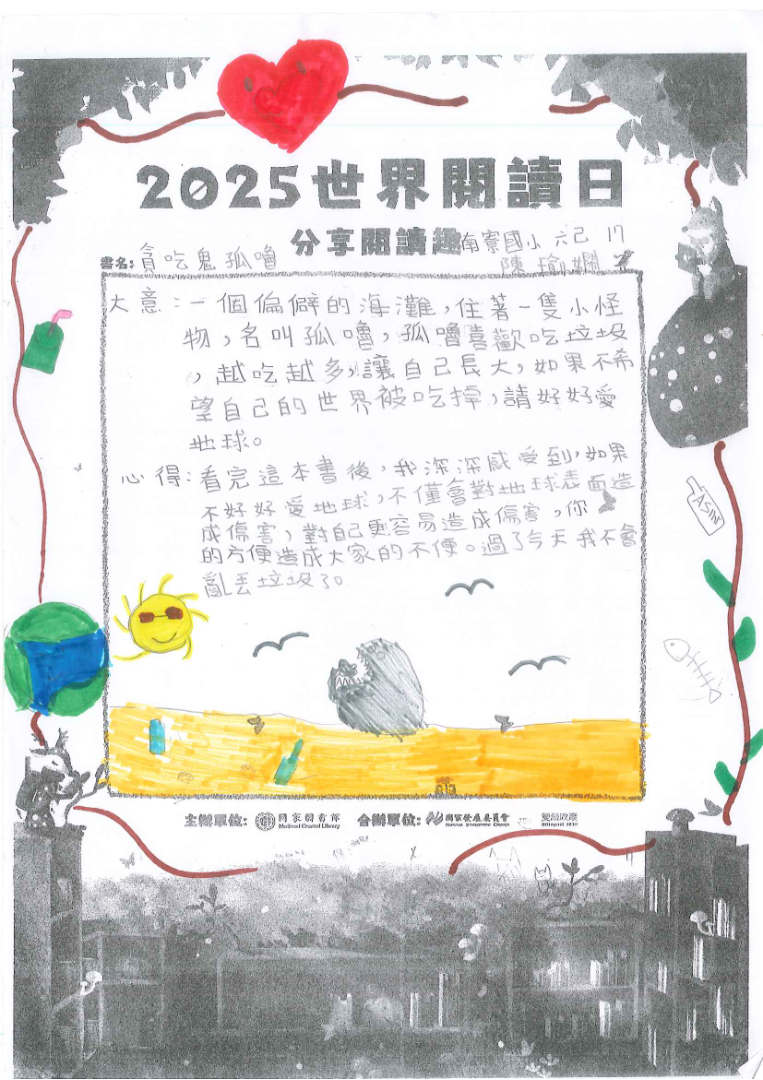 2025世界閱讀日
分享閱讀趣
南寮國小 六己 17
書名:貪吃鬼孤嚕
陳瑜嫻
大意:一個偏僻的海灘,住著一隻小怪
物,名叫孤嚕,孤嚕喜歡吃垃圾
,越吃越多,讓自己長大,如果不希
望自己的世界被吃掉,請好好愛
地球。
心得:看完這本書後,我深深感受到,如果
不好好愛地球,不僅會對地球表面造
成傷害,對自己更容易造成傷害,你
的方便造成大家的不便。過了今天我不會
亂丟垃圾了。
主辦單位: 國家圖書館
National Central Library
合辦單位: 國家發展委員會
National Development Council
雙語政策
Bilingual 2030